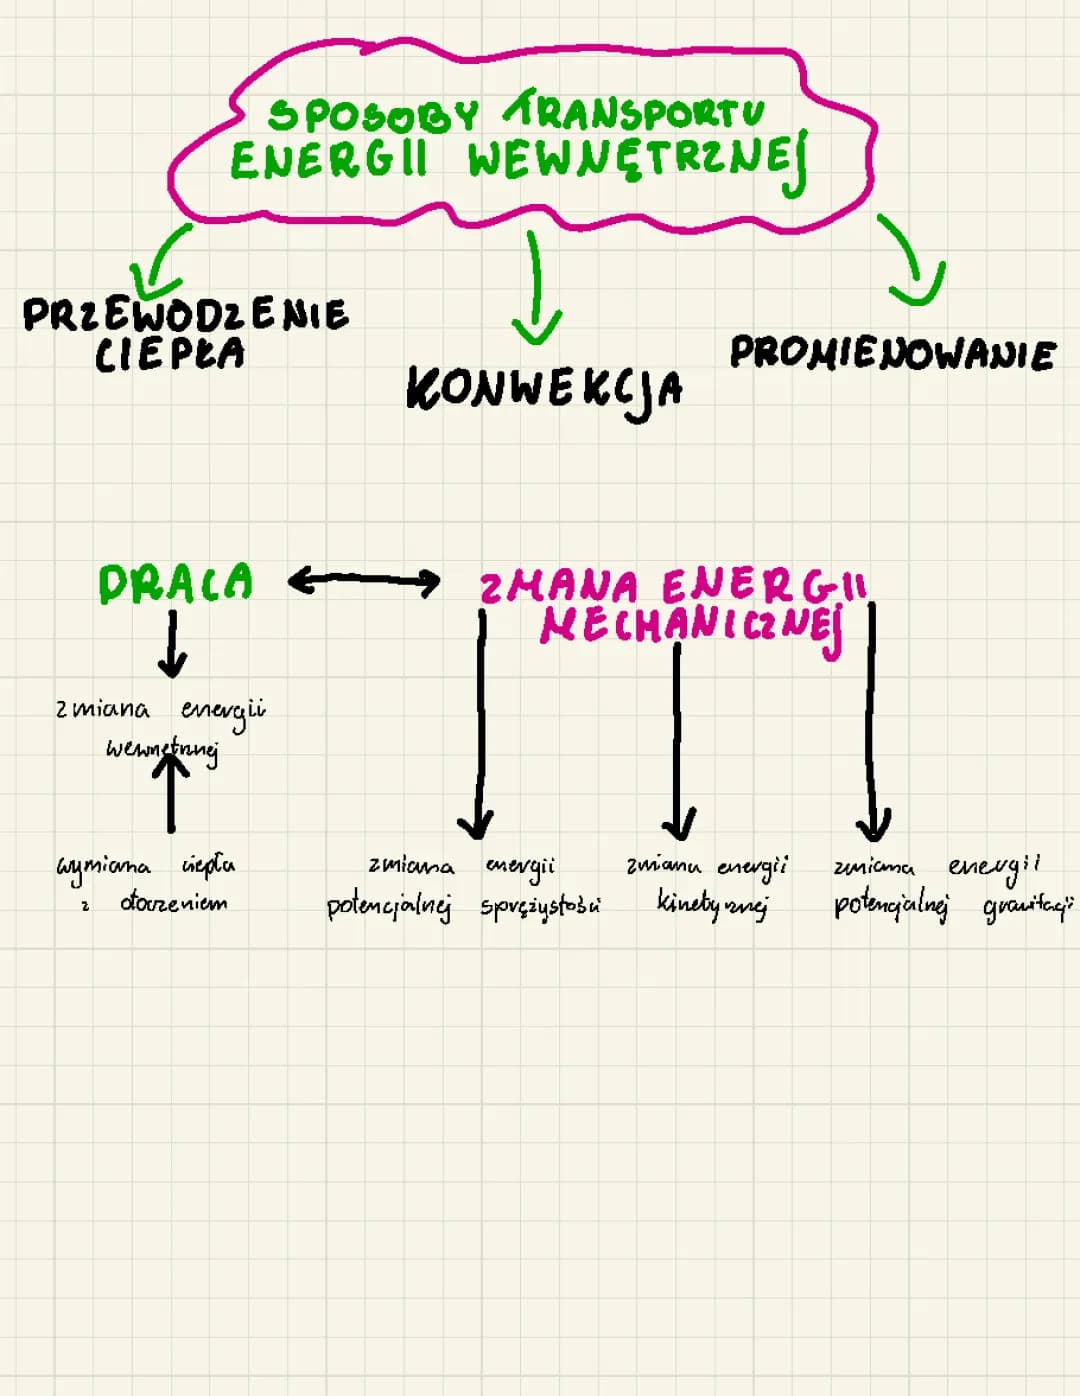 SPOSOBY TRANSPORTU
ENERGII WEWNĘTRZNEJ
PRZEWODZENIE
CIEPŁA
KONWEKCJA
PROMIENOWANIE
DRACA
ZMANA ENERGII
MECHANICZNEJ
zmiana energii
wewnętrznej
wymiana ciepła
z otoczeniem
zmiana energii
potencjalnej sprężystości
zmiana energii
kinetycznej
zmiana energii
potencjalnej grawitacji